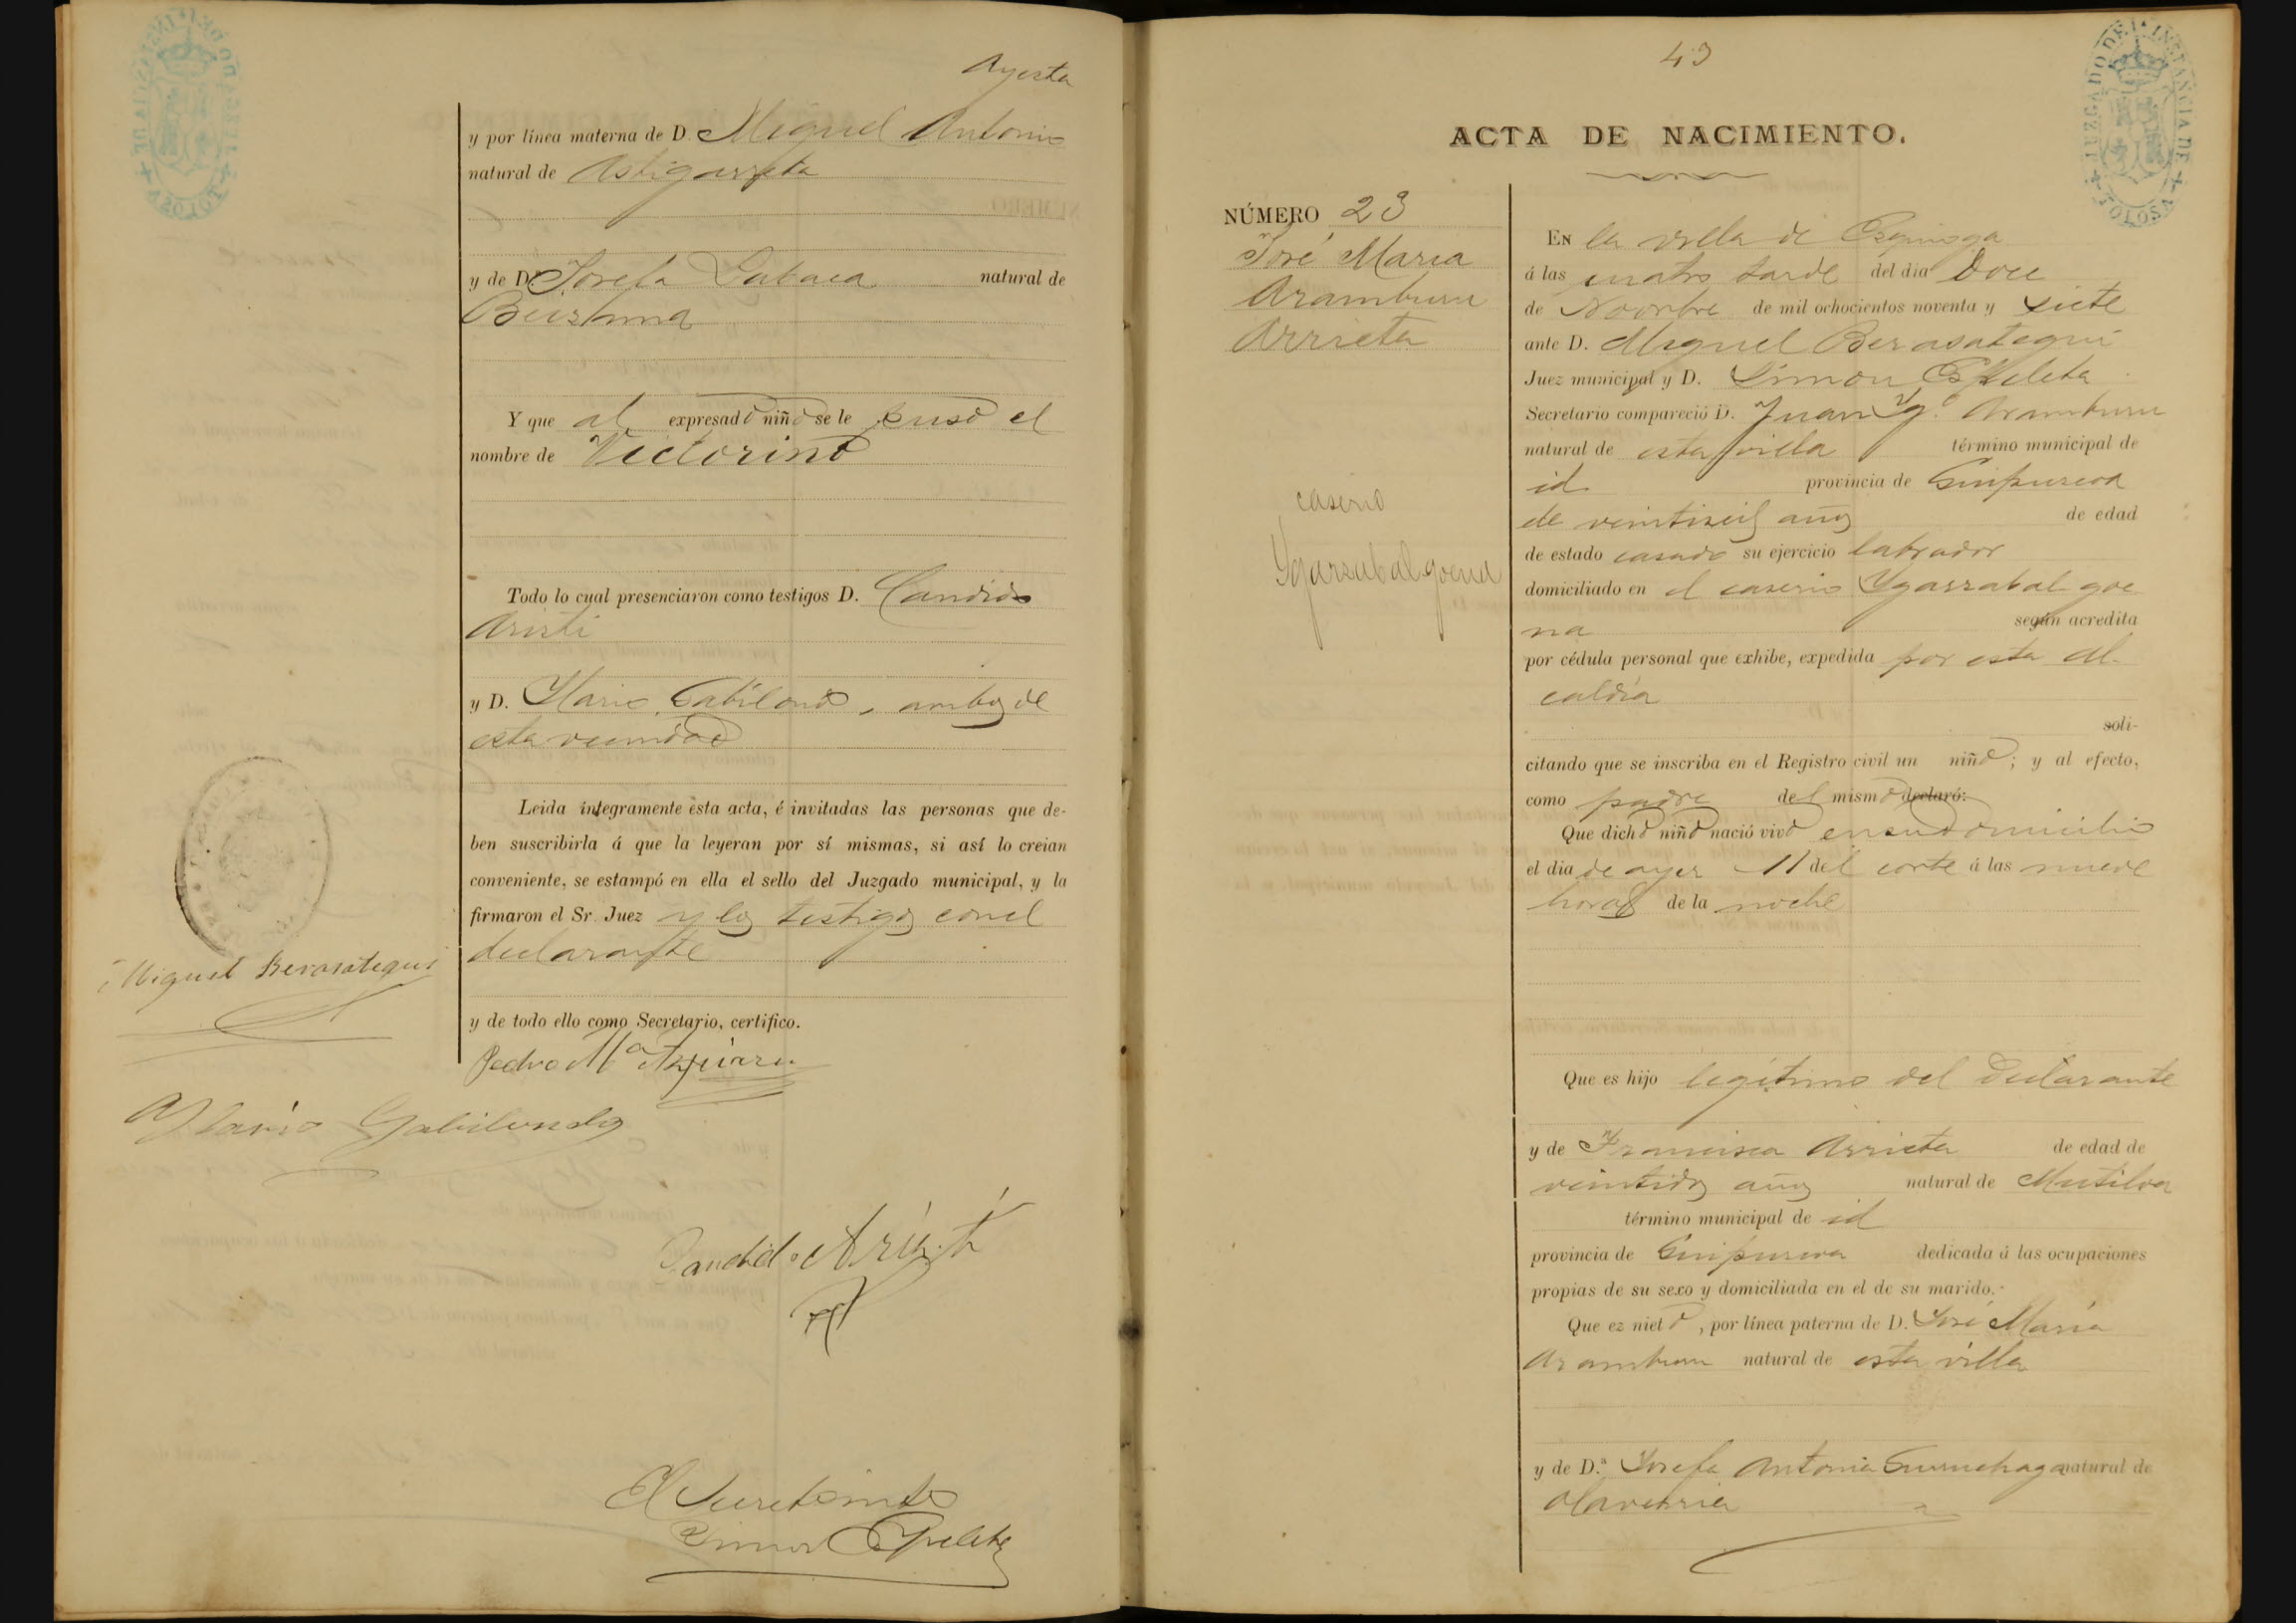 Ayesta
y por línea materna de D. Miguel Antonio
natural de Astigarreta
y de Dª Josefa Zabaea natural de
Beizama
Y que al expresado niño se le puso el
nombre de Victorino
Todo lo cual presenciaron como testigos D. Candido
Aristi
y D. Ylario Gabilondo, ambos de
esta vecindad
Leida íntegramente esta acta, é invitadas las personas que de-
ben suscribirla á que la leyeran por sí mismas, si así lo creian
conveniente, se estampó en ella el sello del Juzgado municipal, y la
firmaron el Sr. Juez y los testigos con el
declarante
y de todo ello como Secretario, certifico.
Miguel Berasategui
Pedro Mª
Ylario Gabilondo
Candido Aristi
El Secretario
Simon Ezpeleta
43
JUZGADO DE 1ª INSTANCIA DE TOLOSA
ACTA DE NACIMIENTO.
NÚMERO 23
José Maria
Aramburu
Arrieta
caserio
Ygarzabalgoena
En la villa de Ezquioga
á las cuatro tarde del dia doce
de Novbre de mil ochocientos noventa y siete
ante D. Miguel Berasategui
Juez municipal y D. Simon Ezpeleta
Secretario compareció D. Juan Ygº Aramburu
natural de esta villa término municipal de
id provincia de Guipuzcoa
de veintiseis años de edad
de estado casado su ejercicio labrador
domiciliado en el caserio Ygarzabal goe
na según acredita
por cédula personal que exhibe, expedida por esta Al-
caldía
soli-
citando que se inscriba en el Registro civil un niño; y al efecto,
como padre del mismo declaró:
Que dicho niño nació vivo en su domicilio
el dia de ayer 11 del corte á las nueve
horas de la noche
Que es hijo legítimo del declarante
y de Francisca Arrieta de edad de
veintidos años natural de Mutiloa
término municipal de id
provincia de Guipuzcoa dedicada á las ocupaciones
propias de su sexo y domiciliada en el de su marido.
Que ez nieto, por línea paterna de D. José María
Aramburu natural de esta villa
y de D.ª Josefa Antonia Gurruchaga natural de
Olaverria